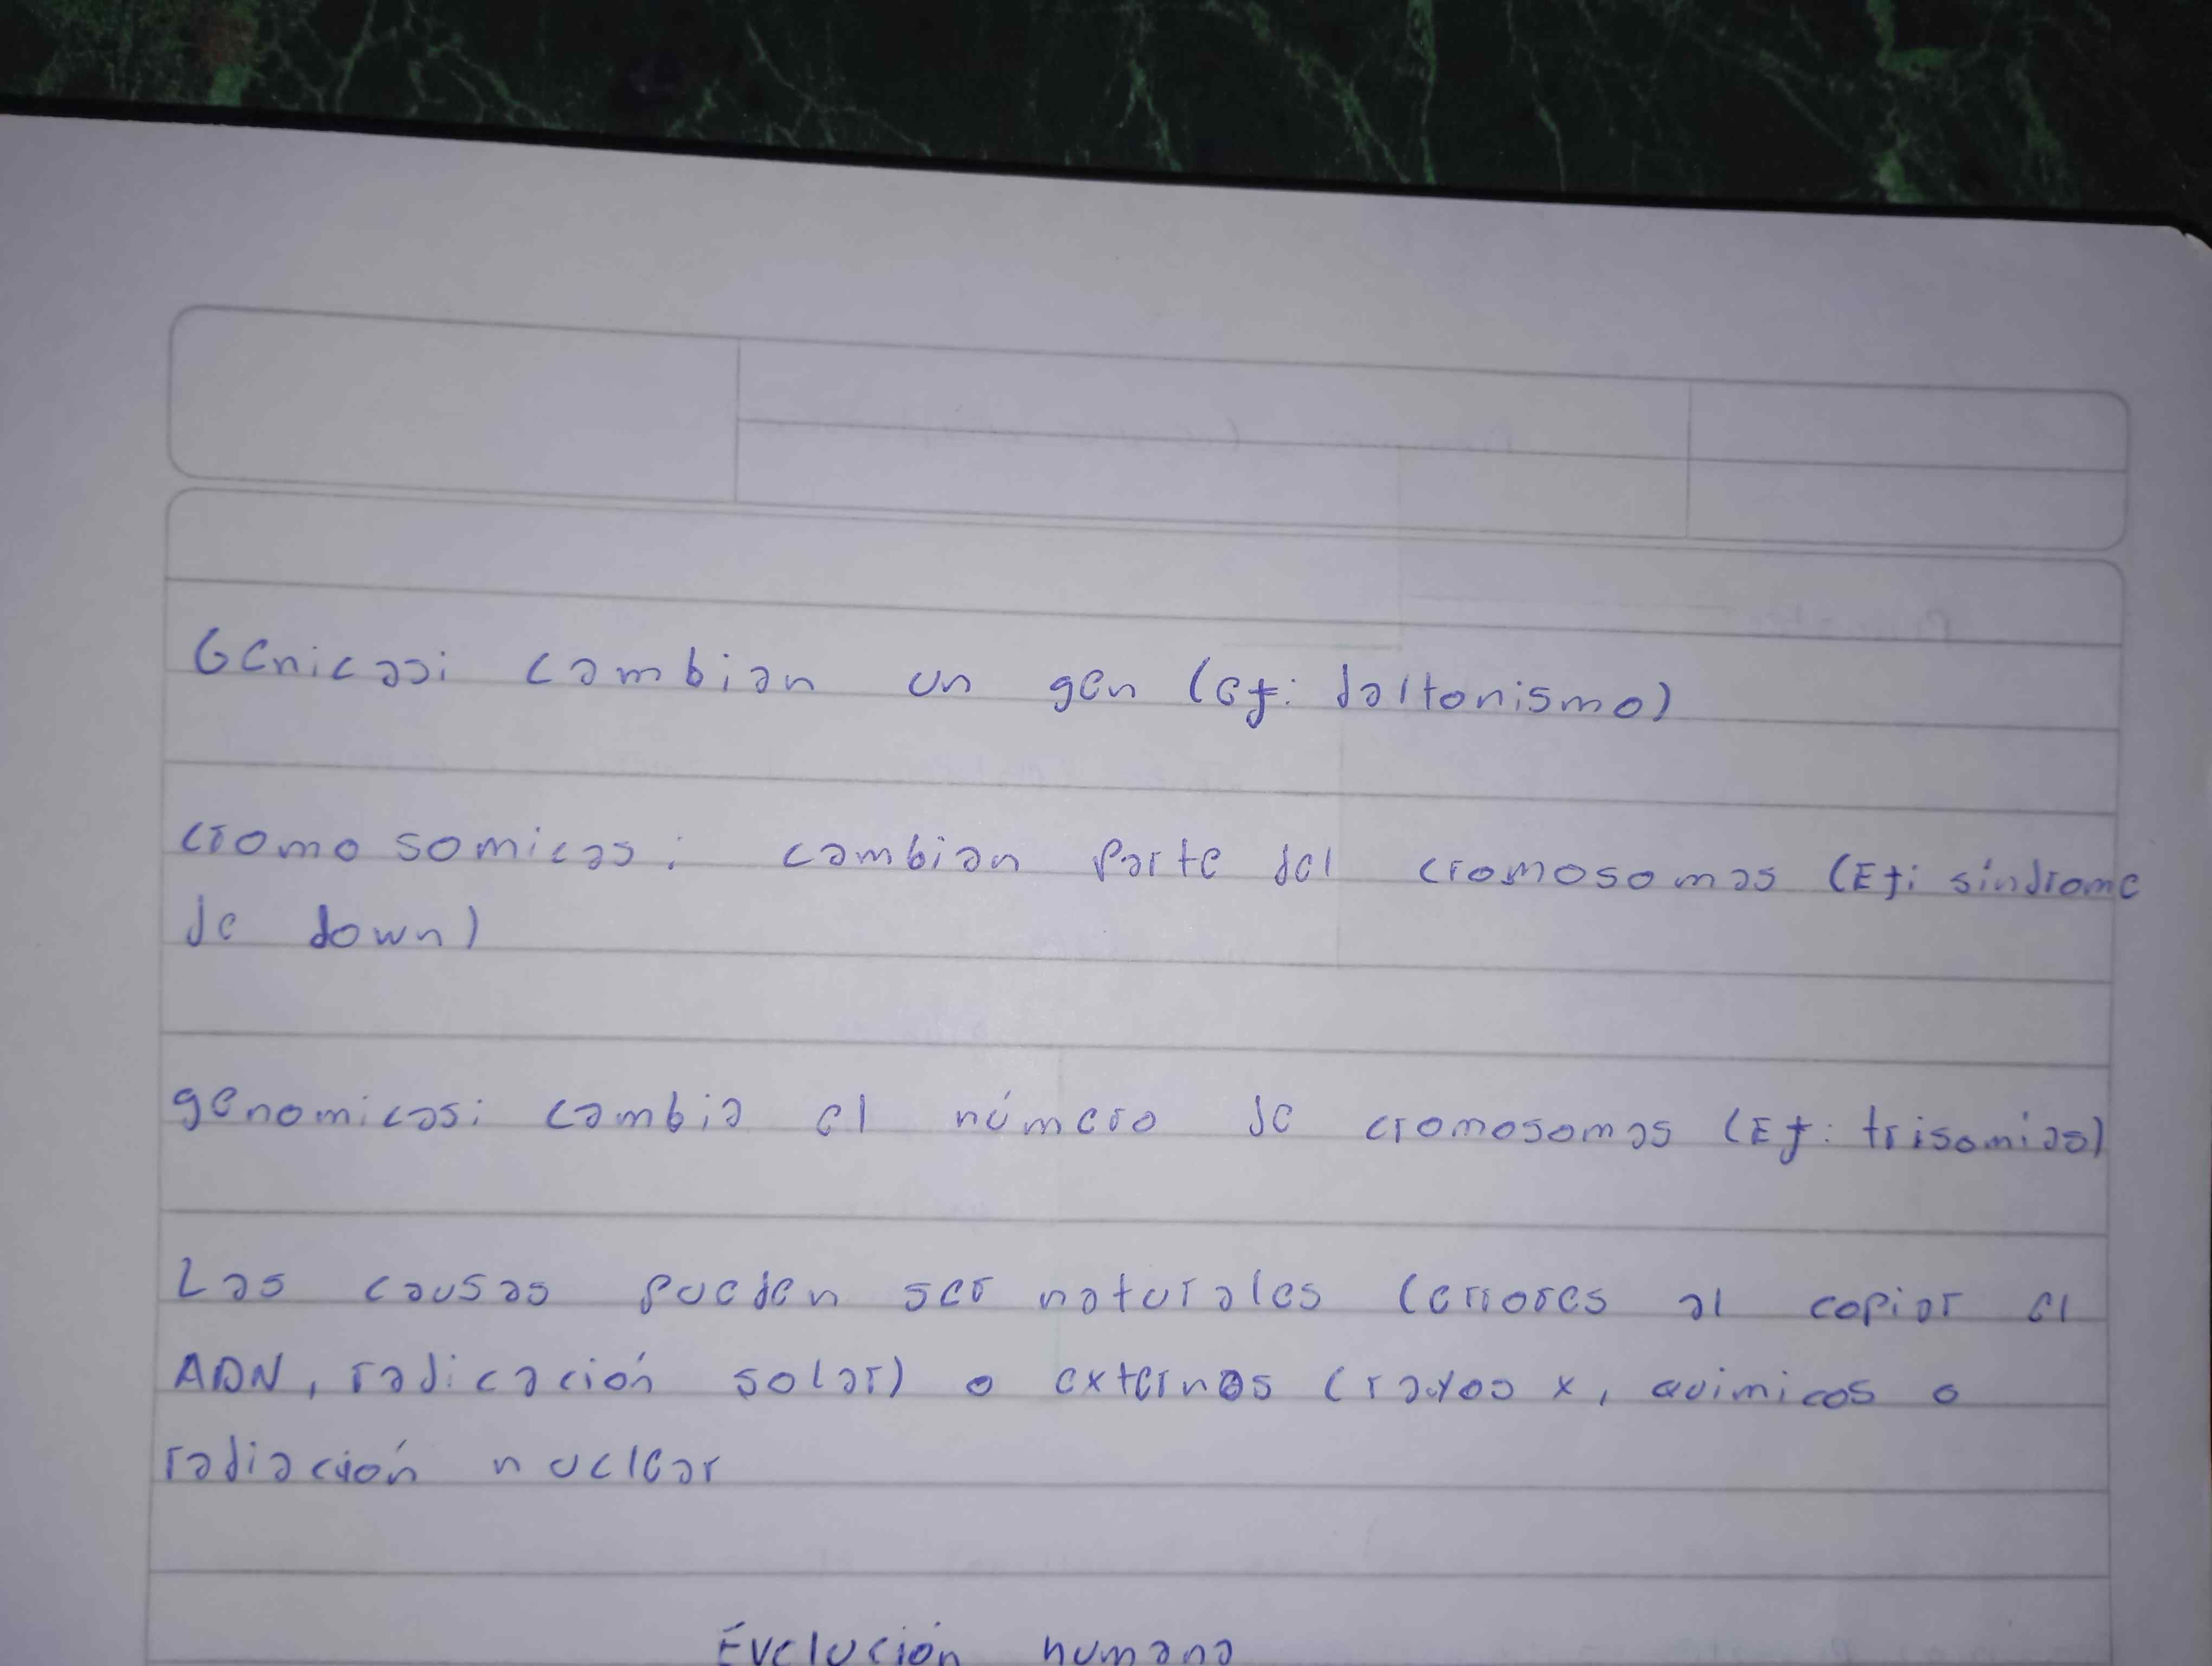 Genicas: cambian un gen (ej: daltonismo)
cromo somicas: cambian parte del cromosomas (Ej: síndrome
de down)
genomicas: cambia el número de cromosomas (Ej: trisomias)
Las causas pueden ser naturales (errores al copiar el
ADN, radicación solar) o externos (rayos x, quimicos o
radiación nuclear
Evolución humana